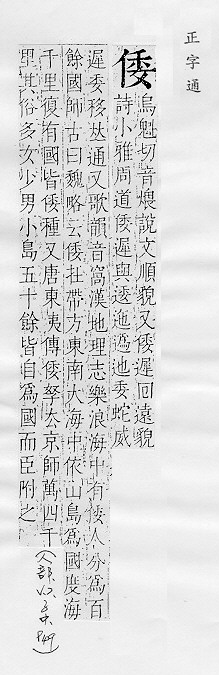 正字通
倭
烏魁切音煨說文順貌又倭遲回遠貌
詩小雅周道倭遲與逶迤爲地委蛇威
遲委移𠀤通又歌韻音窩漢地理志樂浪海中有倭人分爲百
餘國師古曰魏略云倭在帶方東南大海中依山島爲國度海
千里復有國皆倭種又唐東夷傳倭拏去京師萬四千
里其俗多女少男小島五十餘皆自爲國而臣附之